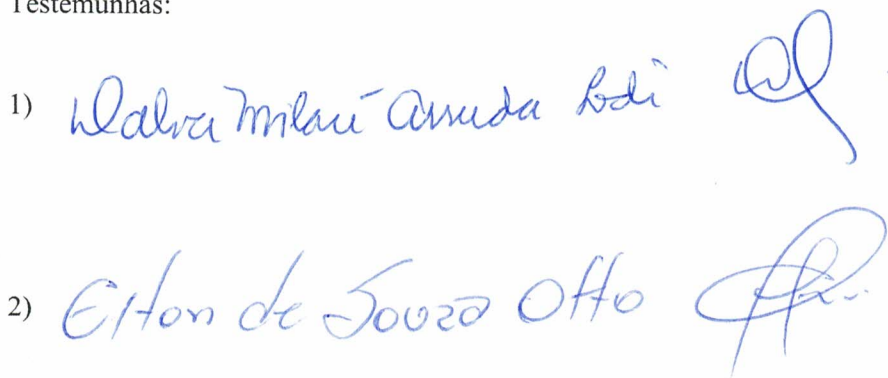 Testemunhas:
1) Dalva Milani Arruda Lodi
2) Elton de Souza Otto